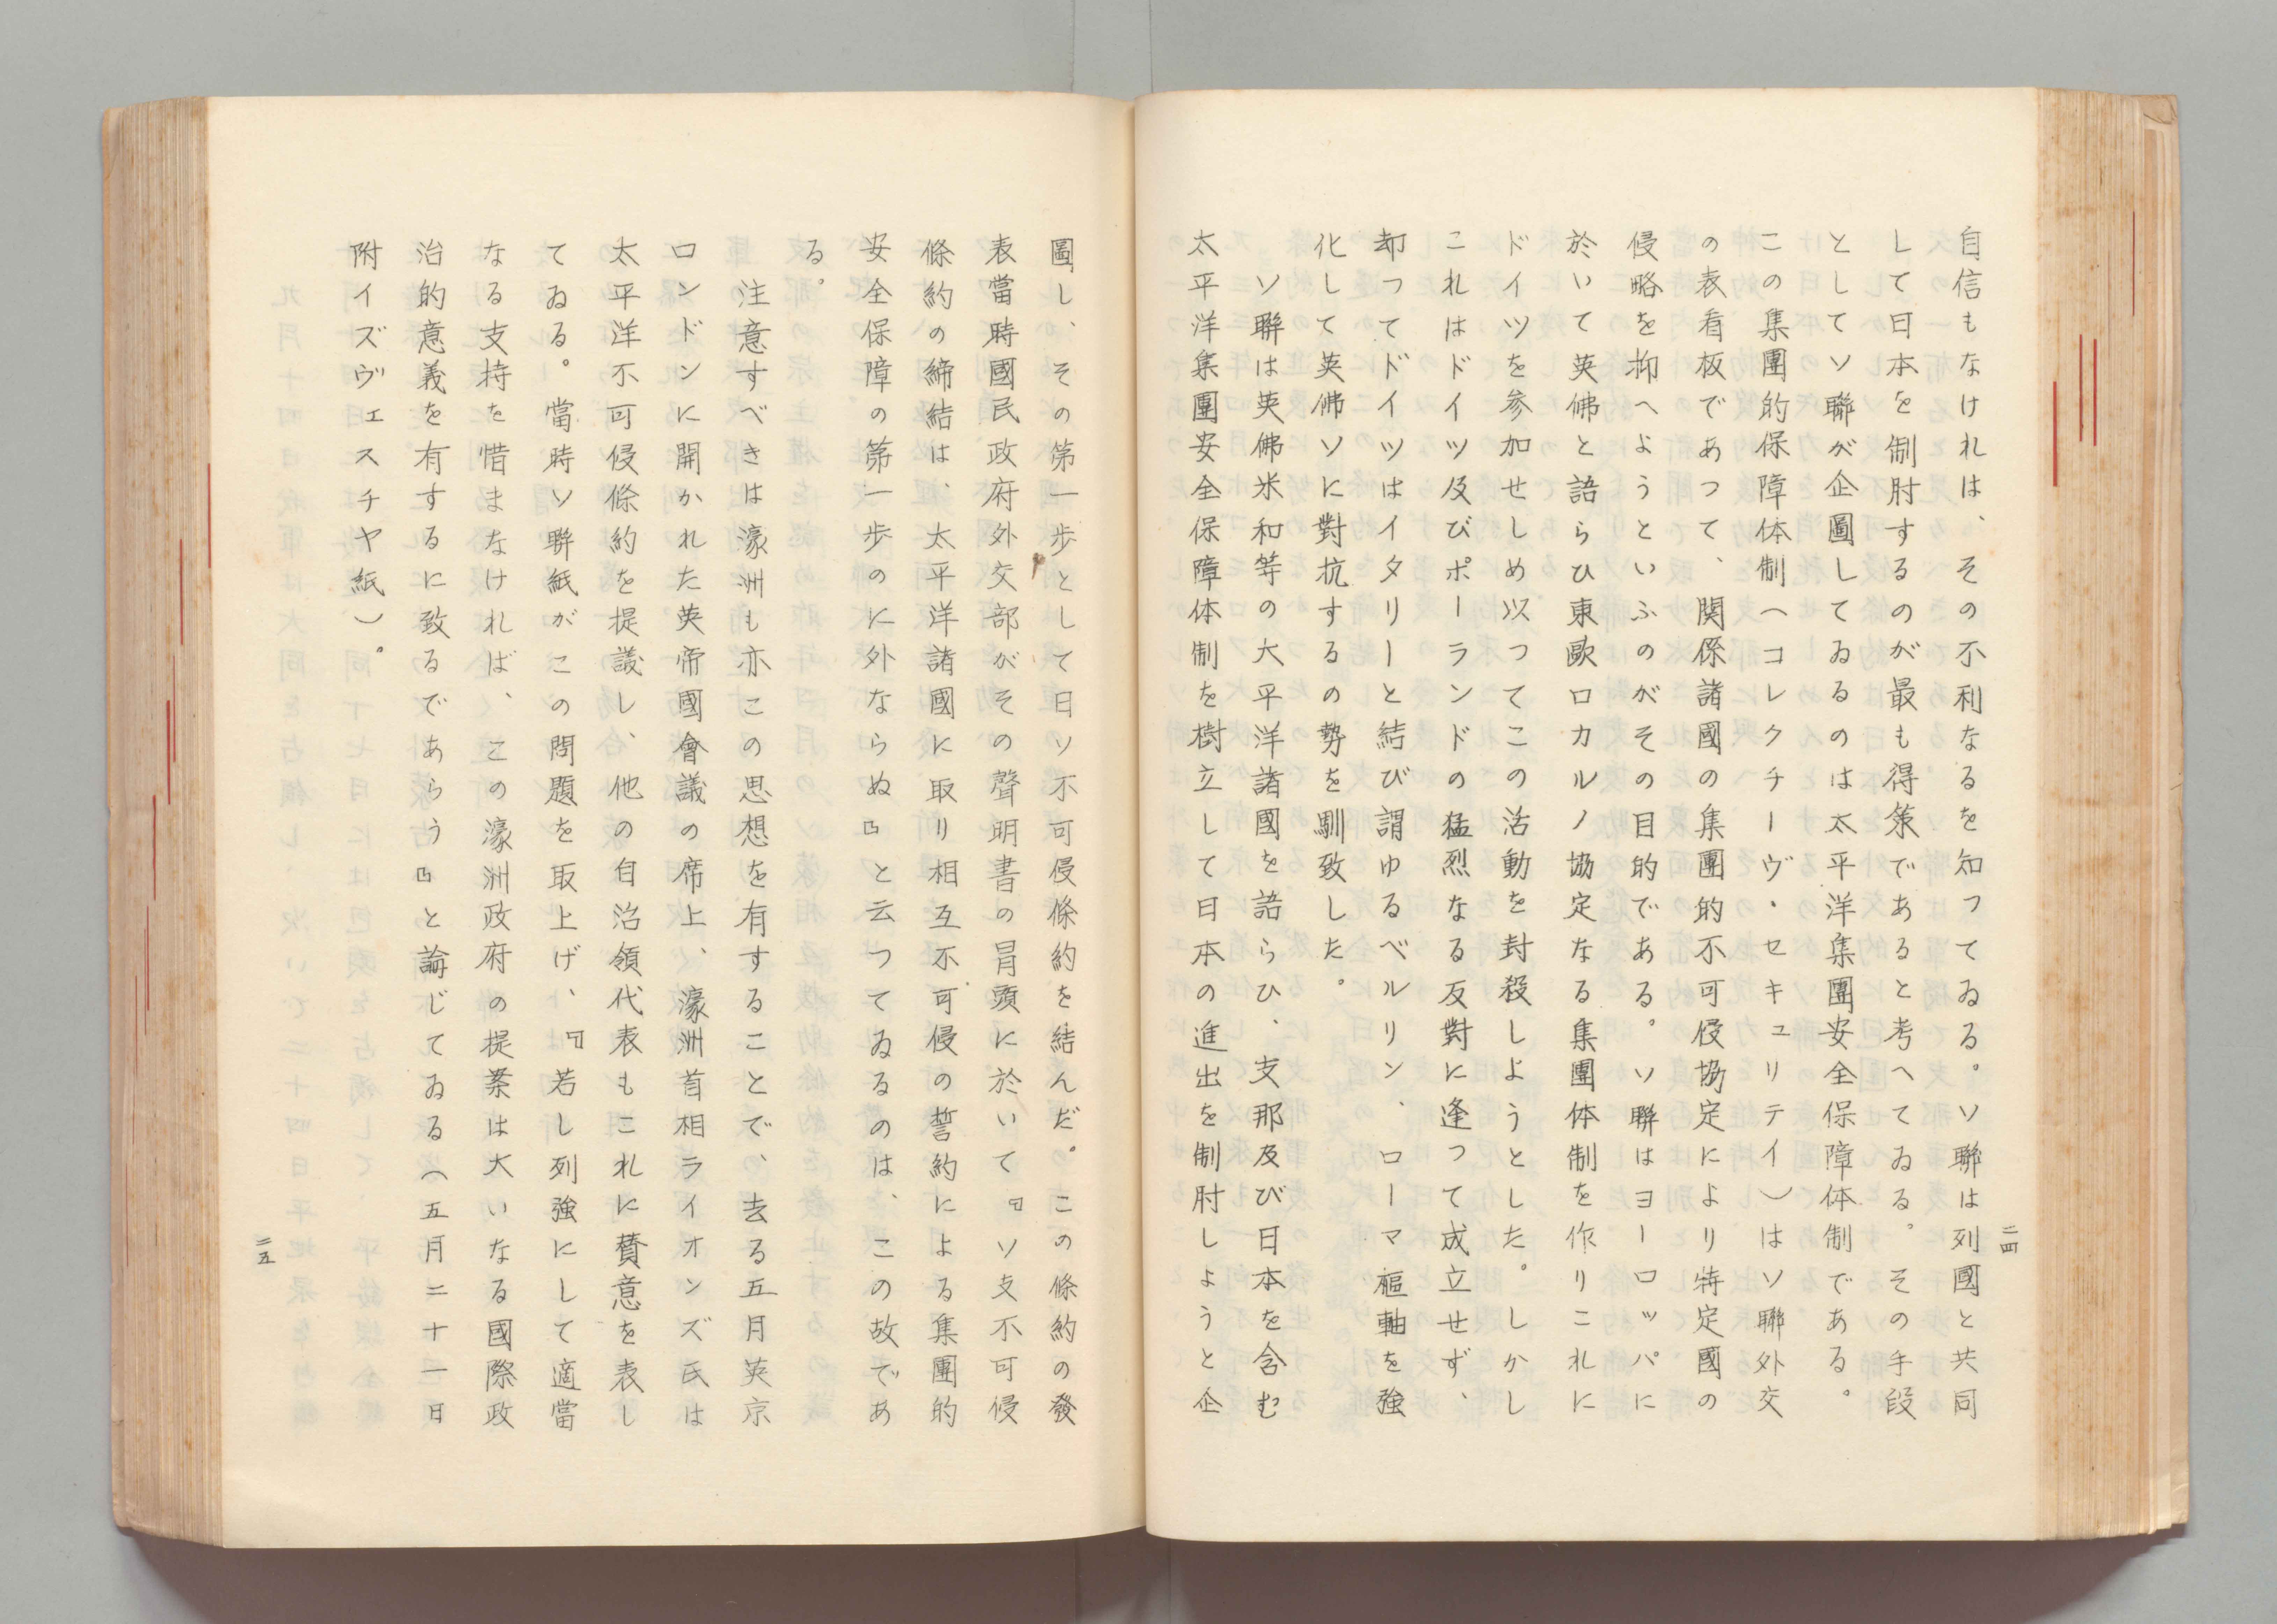 自信もなけれは、その不利なるを知つてゐる。ソ聯は列國と共同
して日本を制肘するのが最も得策であると考へてゐる。その手段
としてソ聯が企圖してゐるのは太平洋集團安全保障体制である。
この集團的保障体制（コレクチーヴ・セキュリテイ）はソ聯外交
の表看板であつて、関係諸國の集團的不可侵協定により特定國の
侵略を抑へようといふのがその目的である。ソ聯はヨーロッパに
於いて英佛と語らひ東歐ロカルノ協定なる集團体制を作りこれに
ドイツを参加せしめ以つてこの活動を封殺しようとした。しかし
これはドイツ及びポーランドの猛烈なる反對に逢つて成立せず、
却つてドイツはイタリーと結び謂ゆるベルリン、ローマ樞軸を強
化して英佛ソに對抗するの勢を馴致した。
ソ聯は英佛米和等の大平洋諸國を語らひ、支那及び日本を含む
太平洋集團安全保障体制を樹立して日本の進出を制肘しようと企
二四
圖し、その第一歩として日ソ不可侵條約を結んだ。この條約の發
表當時國民政府外交部がその聲明書の冐頭に於いて『ソ支不可侵
條約の締結は、太平洋諸國に取り相互不可侵の誓約による集團的
安全保障の第一歩のに外ならぬ』と云つてゐるのは、この故であ
る。
注意すべきは濠洲も亦この思想を有することで、去る五月英京
ロンドンに開かれた英帝國會議の席上、濠洲首相ライオンズ氏は
太平洋不可侵條約を提議し、他の自治領代表もこれに賛意を表し
てゐる。當時ソ聯紙がこの問題を取上げ、『若し列強にして適當
なる支持を惜まなければ、この濠洲政府の提案は大いなる國際政
治的意義を有するに致るであらう』と論じてゐる（五月二十一日
附イズヴェスチヤ紙）。
二五